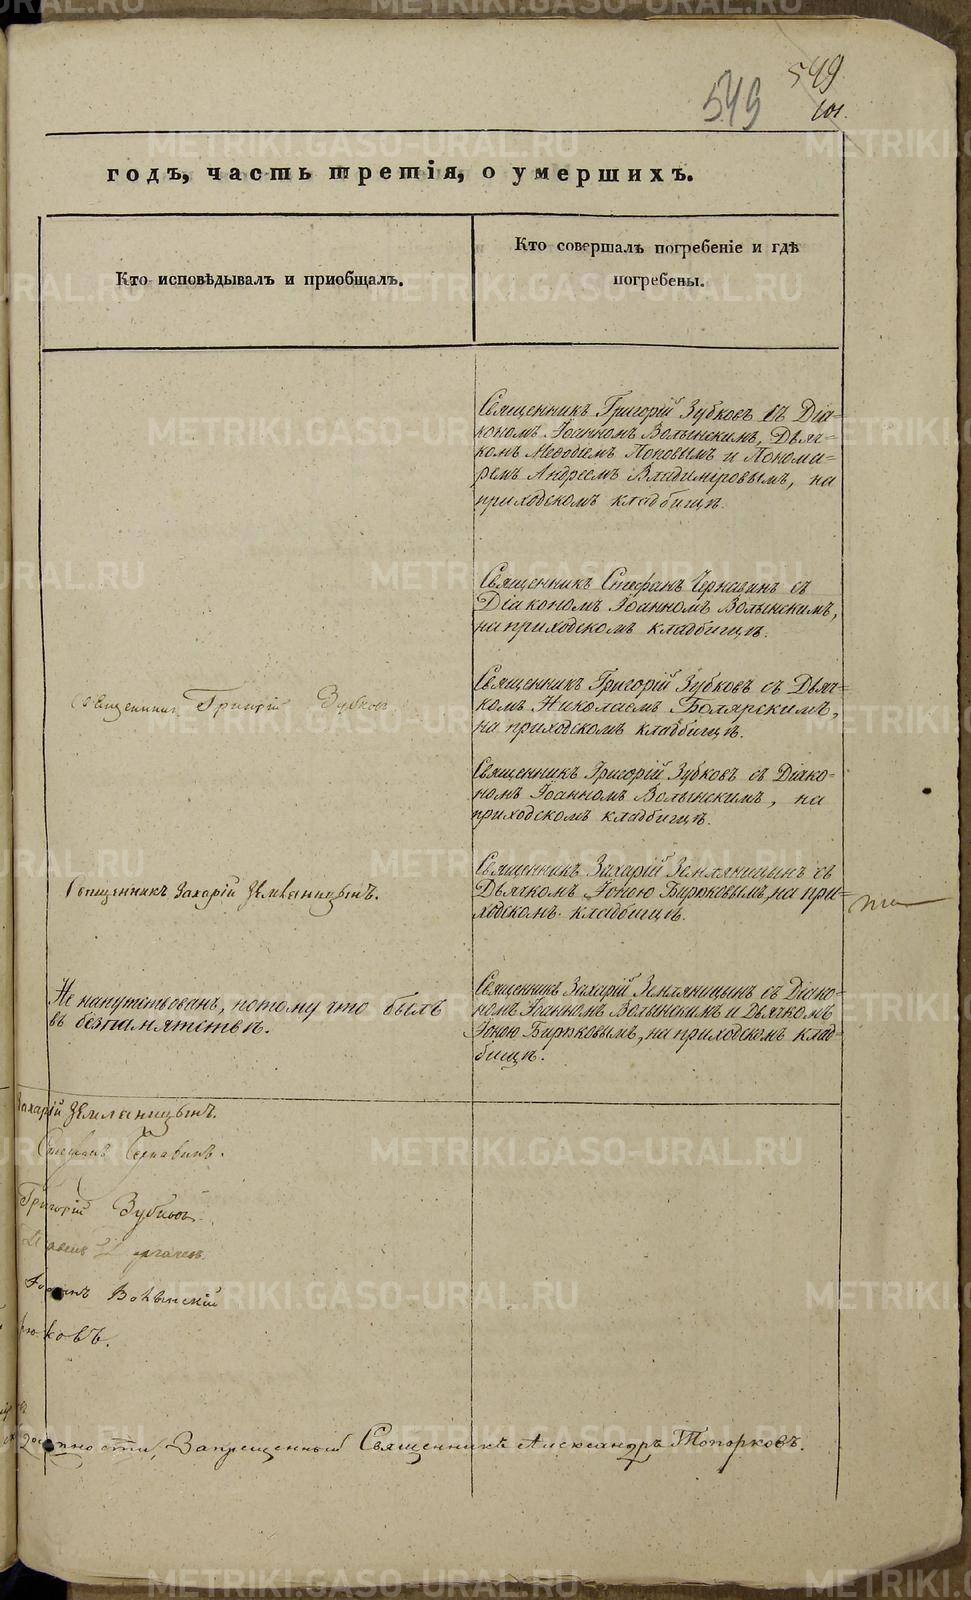 549
549
101.
годъ, часть третія, о умершихъ.
Кто исповѣдывалъ и пріобщалъ.
Кто совершалъ погребеніе и гдѣ
погребены.
Священникъ Григорій Зубковъ съ Діа=
кономъ Іоанномъ Волынскимъ, Дьяч=
комъ Меѳодіемъ Поповымъ и Понома=
ремъ Андреемъ Владиміровымъ, на
приходскомъ кладбищѣ.
Священникъ Стефанъ Чернавинъ съ
Діакономъ Іоанномъ Волынскимъ,
на приходскомъ кладбищѣ.
Священникъ Григорій Зубковъ
Священникъ Григорій Зубковъ съ Дьяч=
комъ Николаемъ Боярскимъ,
на приходскомъ кладбищѣ.
Священникъ Григорій Зубковъ съ Діако=
номъ Іоанномъ Волынскимъ, на
приходскомъ кладбищѣ.
Священникъ Захарій Земляницынъ.
Священникъ Захарій Земляницынъ съ
Дьячкомъ Іоною Бирюковымъ, на при=
ходскомъ кладбищѣ.
Не напутствованъ, потому что былъ
въ безпамятствѣ.
Священникъ Захарій Земляницынъ съ Діако=
номъ Іоанномъ Волынскимъ и Дьячкомъ
Іоною Бирюковымъ, на приходскомъ клад=
бищѣ.
Захарій Земляницынъ.
Стефанъ Чернавинъ.
Григорій Зубковъ
Іоаннъ Волынскій
рюковъ.
Запрещенный Священникъ Александръ Топорковъ.
METRIKI.GASO-URAL.RU